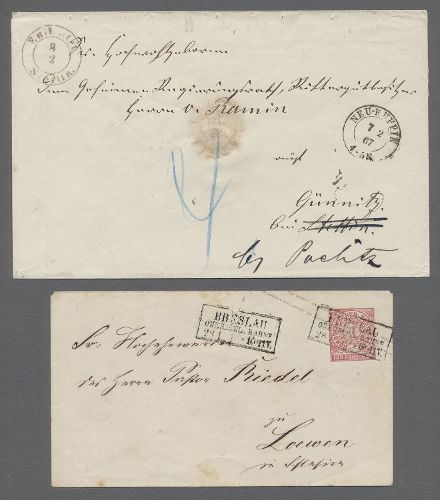 8
2
Sr. Hochwohlgeboren
dem Geheimen Regierungsrath, Rittergutsbesitzer
Herrn v. Ramin
NEU-RUPPIN
7 2
67
4-5N.
auf
Günnitz
bei Stettin.
by Poelitz
4
BRESLAU
OBERSCHL. BAHNH
28
10-11V.
Sr. Hochehrwürden
des Herrn Pastor Riedel
zu
Loewen
in Schlesien